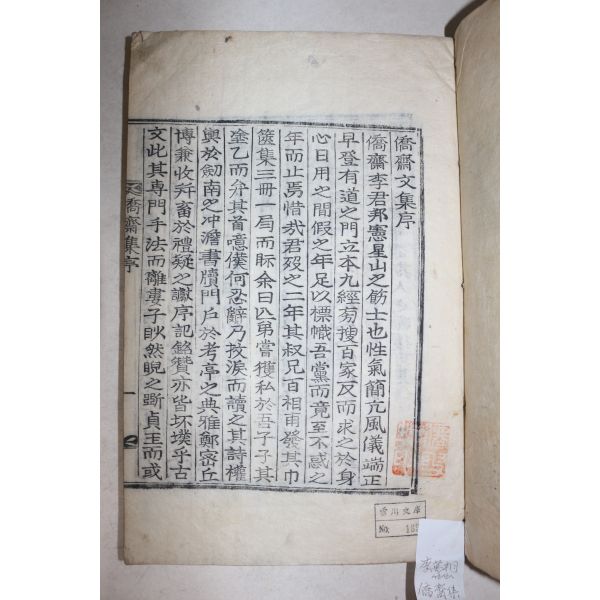 僑齋文集序
僑齋李君邦憲星山之飭士也性氣簡亢風儀端正
早登有道之門立本九經旁搜百家反而求之於身
心日用之間假之年足以標幟吾黨而竟至不惑之
年而止焉惜哉君歿之二年其叔兄百相甫發其巾
篋集三冊一局而眎余曰匹弟嘗獲私於吾子子其
塗乙而弁其首噫僕何忍辭乃抆淚而讀之其詩權
輿於劒南之冲澹書牘門戶於考亭之典雅鄭密丘
博兼收幷畜於禮疑之讞序記銘贊亦皆坏墣乎古
文此其専門手法而離婁子眇然睨之斲貞玉而或
僑齋集序
一
雪川文庫
No.
僑齋集